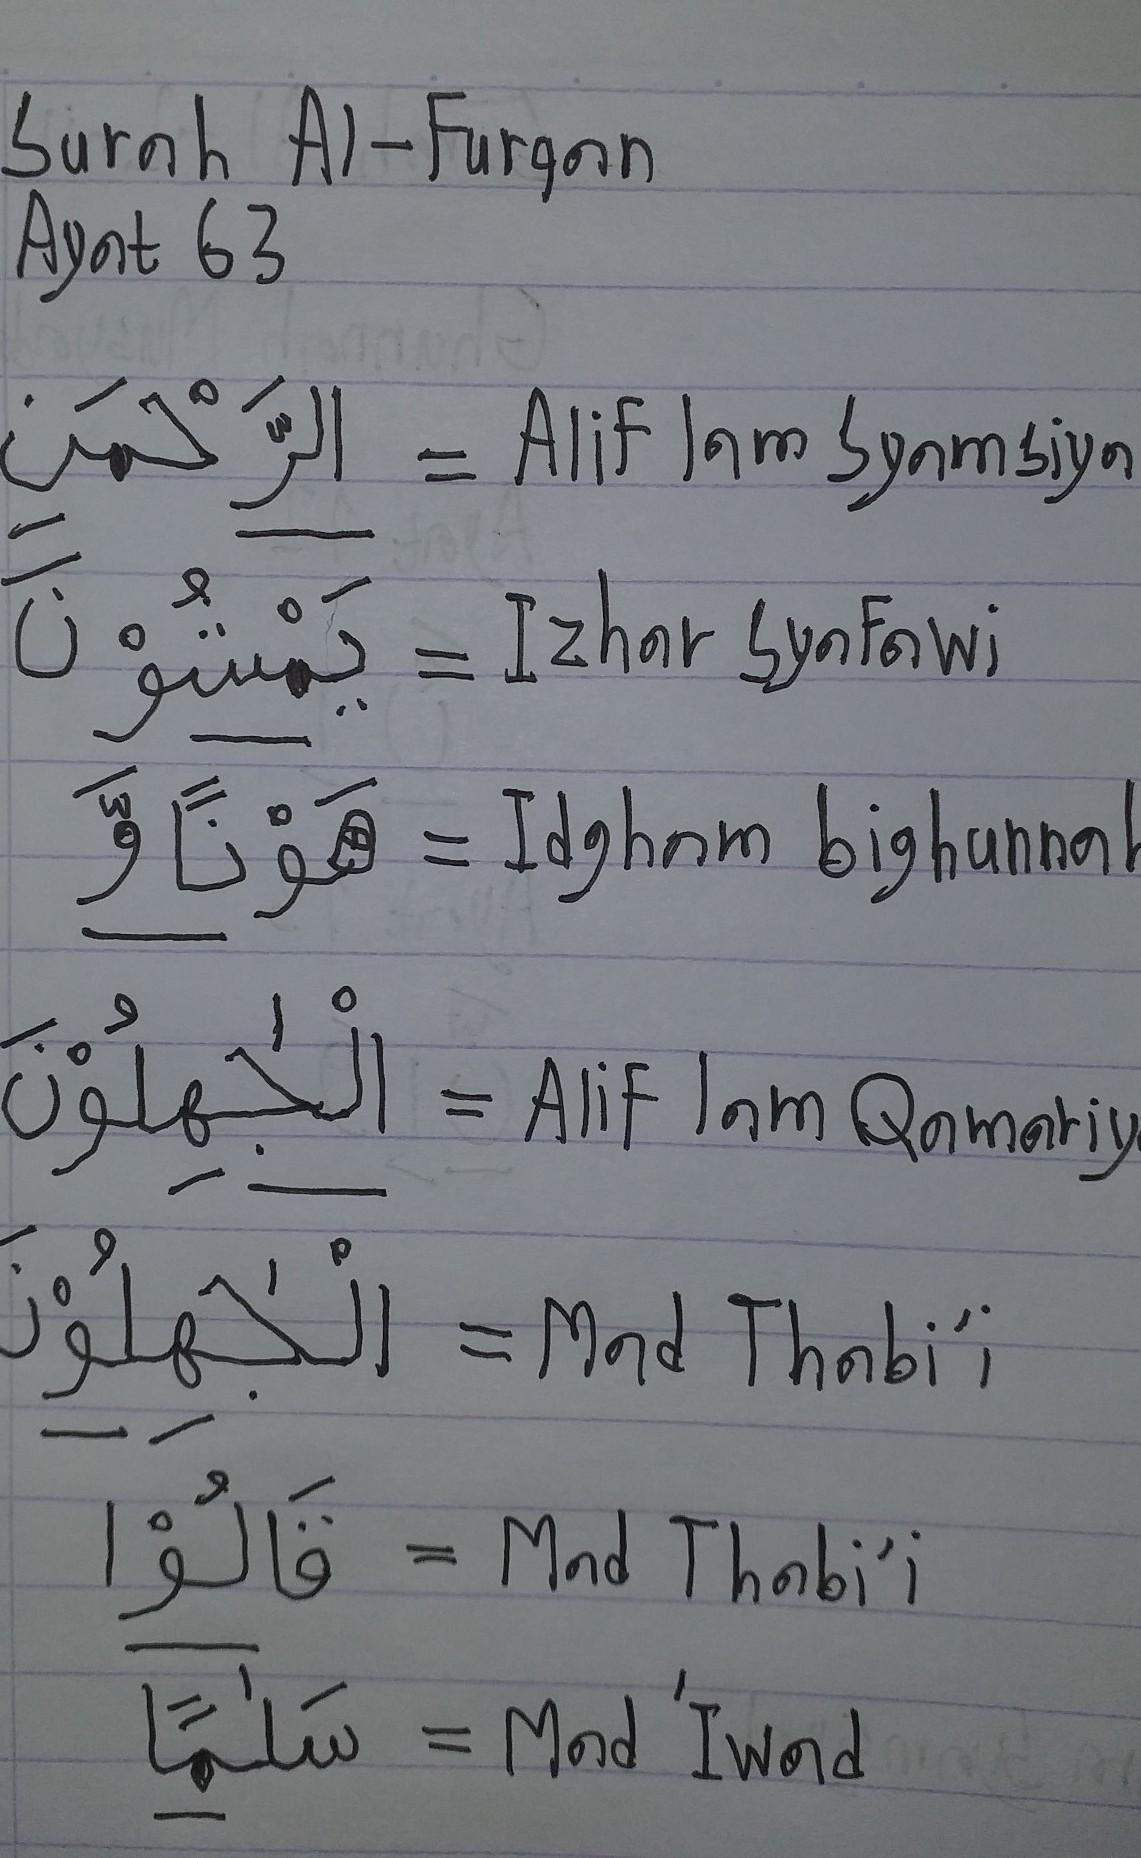 Surah Al-Furqan
Ayat 63
الرَّحْمَنِ = Alif lam Syamsiya
يَمْشُوْنَ = Izhar Syafawi
هَوْنًا وَّ = Idgham bighunnah
الْجٰهِلُوْنَ = Alif lam Qamariy
الْجٰهِلُوْنَ = Mad Thabi'i
قَالُوْا = Mad Thabi'i
سَلٰمًا = Mad 'Iwad